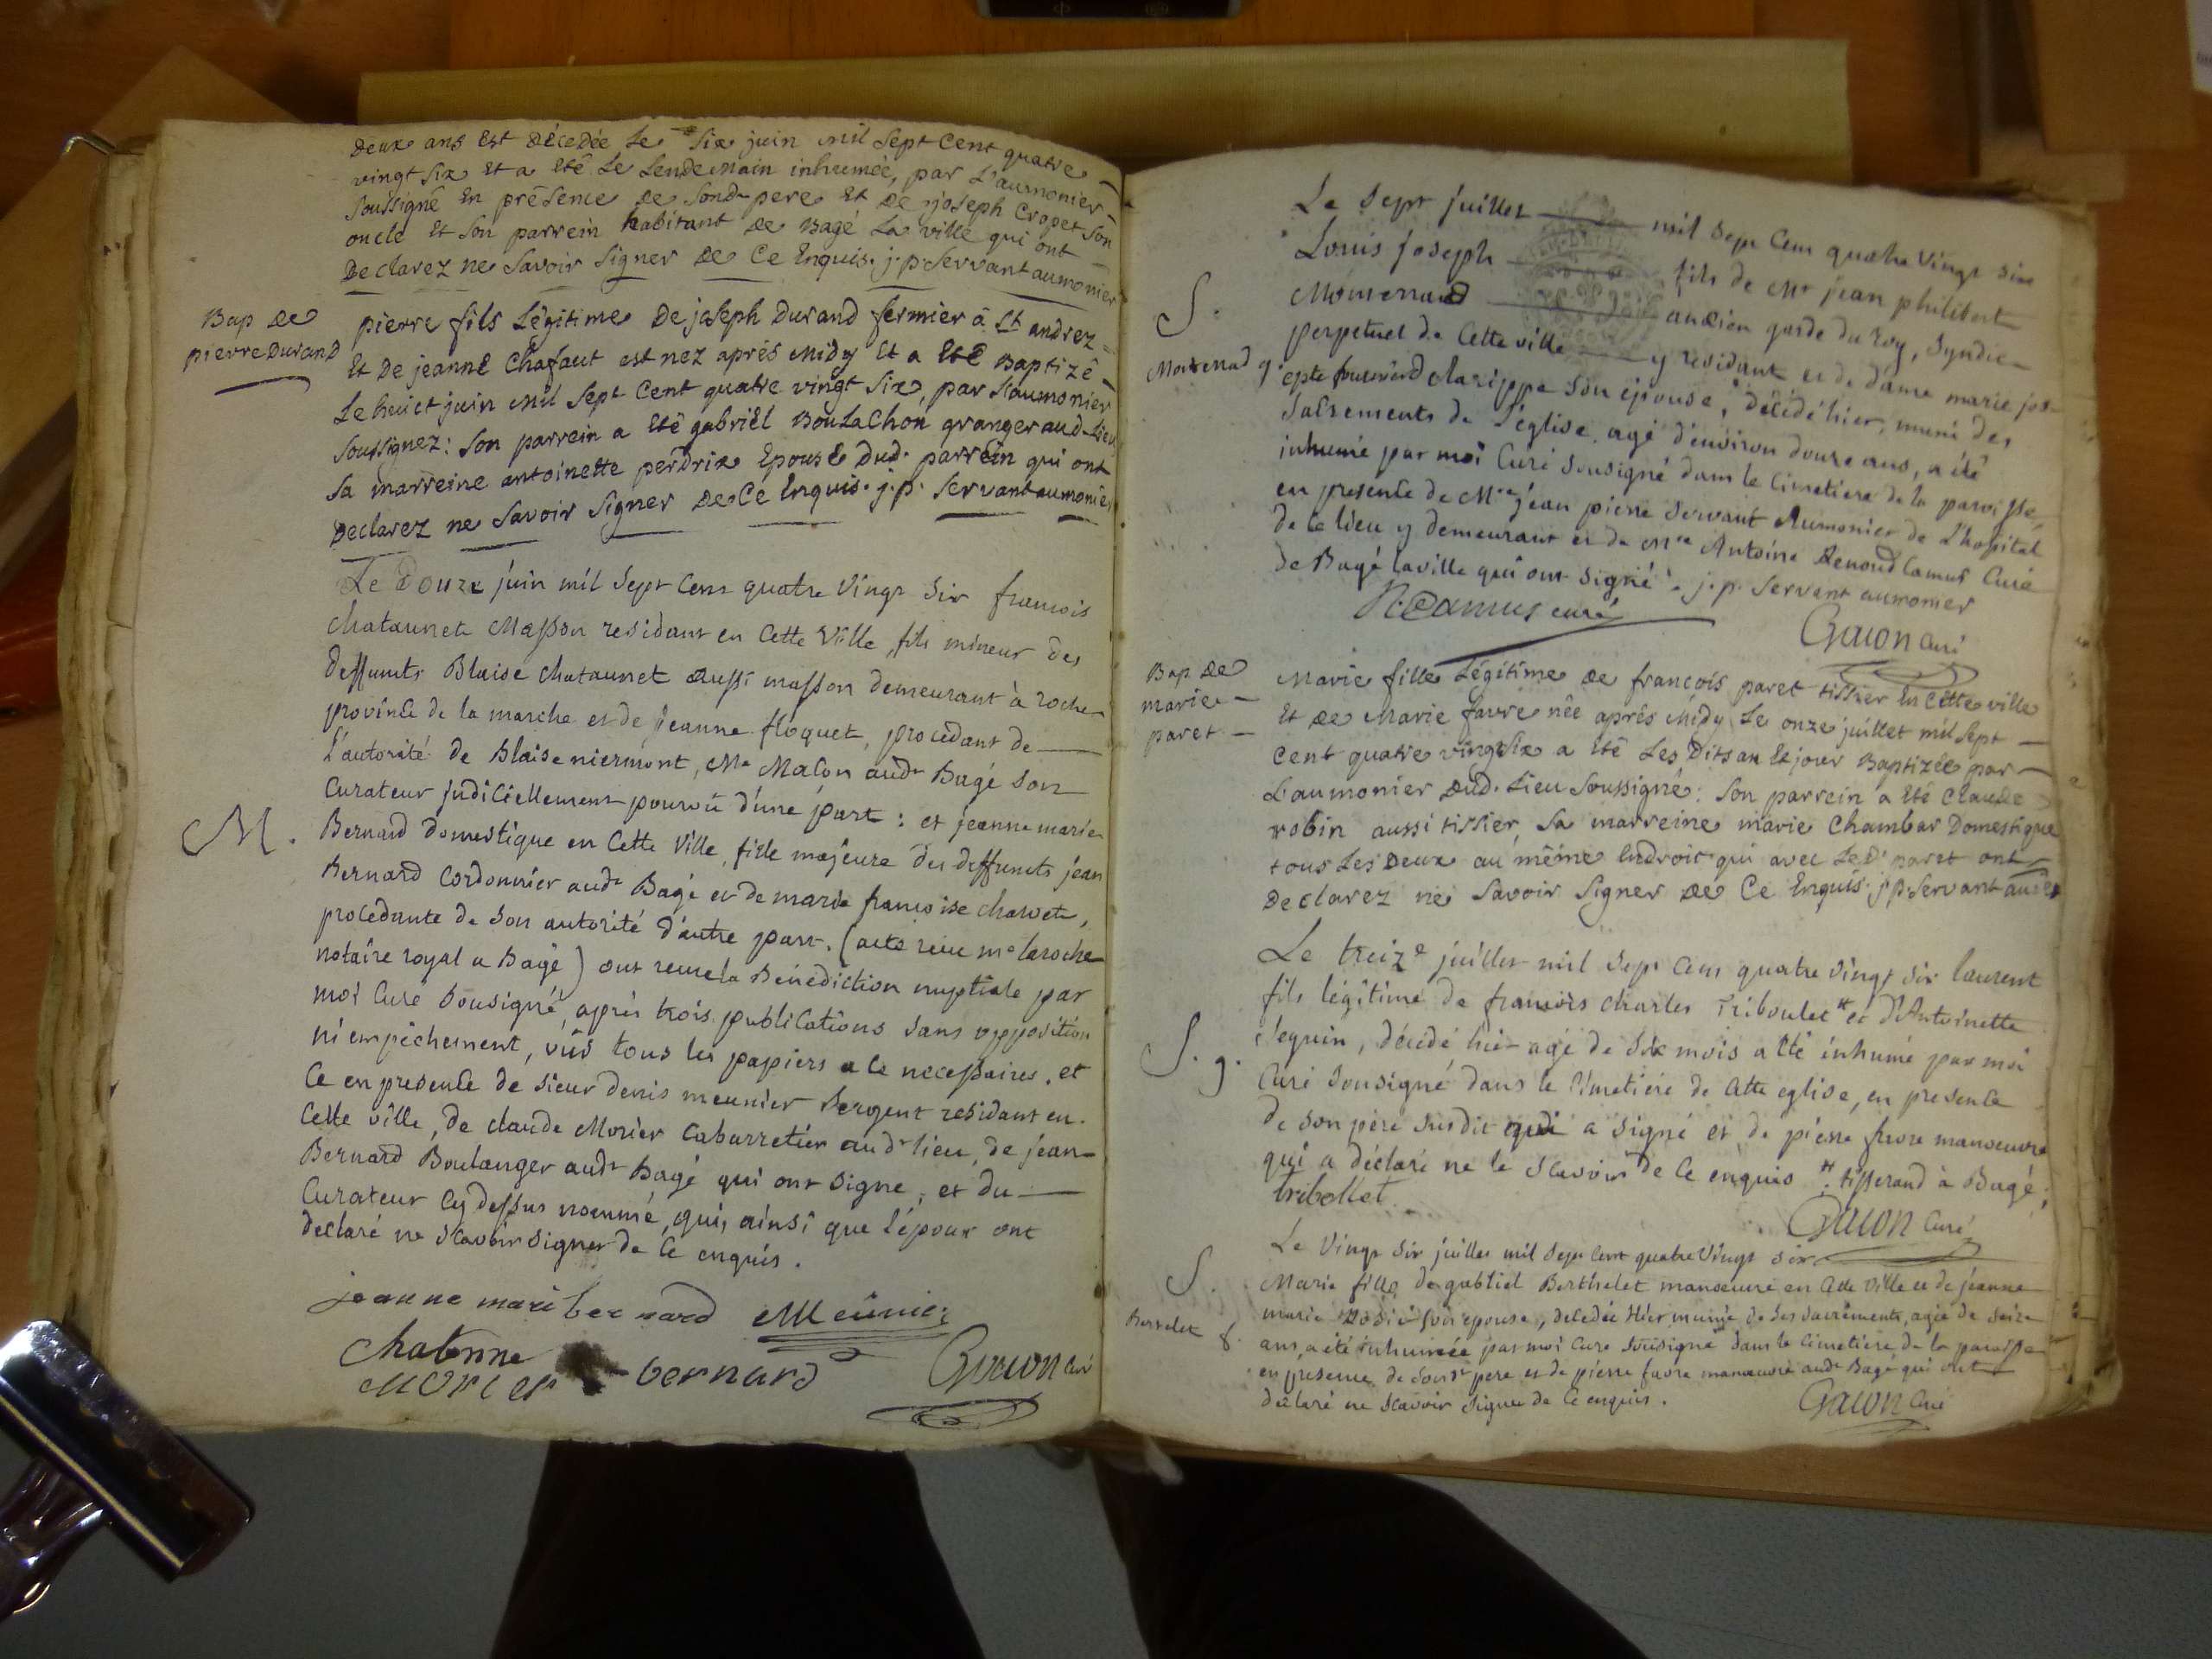 Deux ans Est Décedée Le Six juin mil Sept Cent quatre
vingt Six Et a Eté Le Lendemain inhumée, par L'aumonier
Soussigné En présence de Sond. pere Et de joseph Cropet Son
oncle Et Son parrein habitant de Bagé La ville qui ont
Declarez ne Savoir Signer de Ce Enquis. j. p. Servant aumonier
Bap de
pierre Durand
pierre fils Légitime De joseph Durand fermier á St andrez
Et De jeanne Chafaut est nez aprés midy Et a Eté Baptizé
Le huict juin mil Sept Cent quatre vingt Six, par L'aumonier
Soussignez: Son parrein a Eté gabriël BouLachon granger aud. Lieu
Sa marreine antoinette perdrix Epouse Dud. parrein qui ont
Declarez ne Savoir Signer De Ce Enquis. j. p. Servant aumonier
Le Douze juin mil Sept Cens quatre Vingt Six francois
chataunet Masson residant en Cette Ville, fils mineur des
deffunts Blaise chataunet aussi masson demeurant à roche
province de la marche et de Jeanne floquet, procedant de
l'autorité de blaise niermont, Me Macon audt Bagé son
Curateur judiciellement pourvû d'une part : et jeanne marie
M.
Bernard domestique en Cette Ville, fille majeure des deffunts jean
bernard Cordonnier audt Bagé et de marie francoise chavet,
procedante de son autorité d'autre part. (acte recu me laroche
notaire royal a Bagé) ont recue la Bénédiction nuptiale par
moi Curé Sousigné, après trois publications sans opposition
ni empêchement, vûs tous les papiers a ce necessaires, et
Ce en presence de sieur denis meunier sergent residant en
Cette ville, de claude Morier Cabarretier audt lieu, de jean
Bernard Boulanger audt Bagé qui ont Signé, et du
Curateur Cy dessus nommé, qui, ainsi que l'époux ont
declaré ne sçavoir signer de Ce enquis.
jeanne mari bernard Meûnier
Chatonne
Morier bernard Gacon curé
Le Sept juillet mil Sept Cent quatre Vingt Six
Louis joseph fils de Mr jean philibert
S.
Monternad ancien garde du roy, Syndic
perpetuel de Cette ville y residant et de dame marie jos-
Monternad g.
clarippe Son épouse, décédé hier, muni des
Sacrements de l'église, agé d'environ douze ans, a été
inhumé par moi Curé Sousigné dans le Cimetiere de la paroisse,
en presence de Mre jean pierre Servant Aumonier de L'hopital
de ce lieu y demeurant et de Mre Antoine Renoud Camus Curé
de Bagé laville qui ont signé. j. p. Servant aumonier
R. Camus curé
Gacon Curé
Bap de
marie
paret
Marie fille Légitime de francois paret tissier En Cette ville
Et de Marie favre née aprés Midy Le onze juillet mil Sept
Cent quatre vingt Six a Eté Les Dits an Et jour Baptizée par
L'aumonier Dud. Lieu Soussigné: Son parrein a Eté Claude
robin aussi tissier, Sa marreine marie Chambar Domestique
tous Les Deux au même Endroit qui avec Led. paret ont
Declarez ne Savoir Signer de Ce Enquis. j. p. Servant
Le treize juillet mil Sept Cens quatre Vingt Six laurent
fils légitime de francois charles Triboulet # et d'Antoinette
S. g.
Seguin, décédé hier agé de Six mois a été inhumé par moi
Curé Sousigné dans le Cimetiere de Cette eglise, en presence
de son père susdit qui a signé et de pierre favre manoeuvre
qui a déclaré ne le Sçavoir de Ce enquis # tisserand à Bagé;
tribollet
Gacon Curé
Le Vingt Six juillet mil Sept Cent quatre Vingt Six
S.
Marie fille de gabriel Berthelet manoeuvre en Cette Ville et de jeanne
marie son epouse, decedée Hier, munie de ses Sacrements, agée de Seize
bertelet f.
ans, a été inhumée par moi Curé Sousigné dans le Cimetiere de la paroisse
en presence de Sondt pere et de pierre favre manoeuvre audt Bagé qui ont
déclaré ne Sçavoir signer de Ce enquis.
Gacon Curé